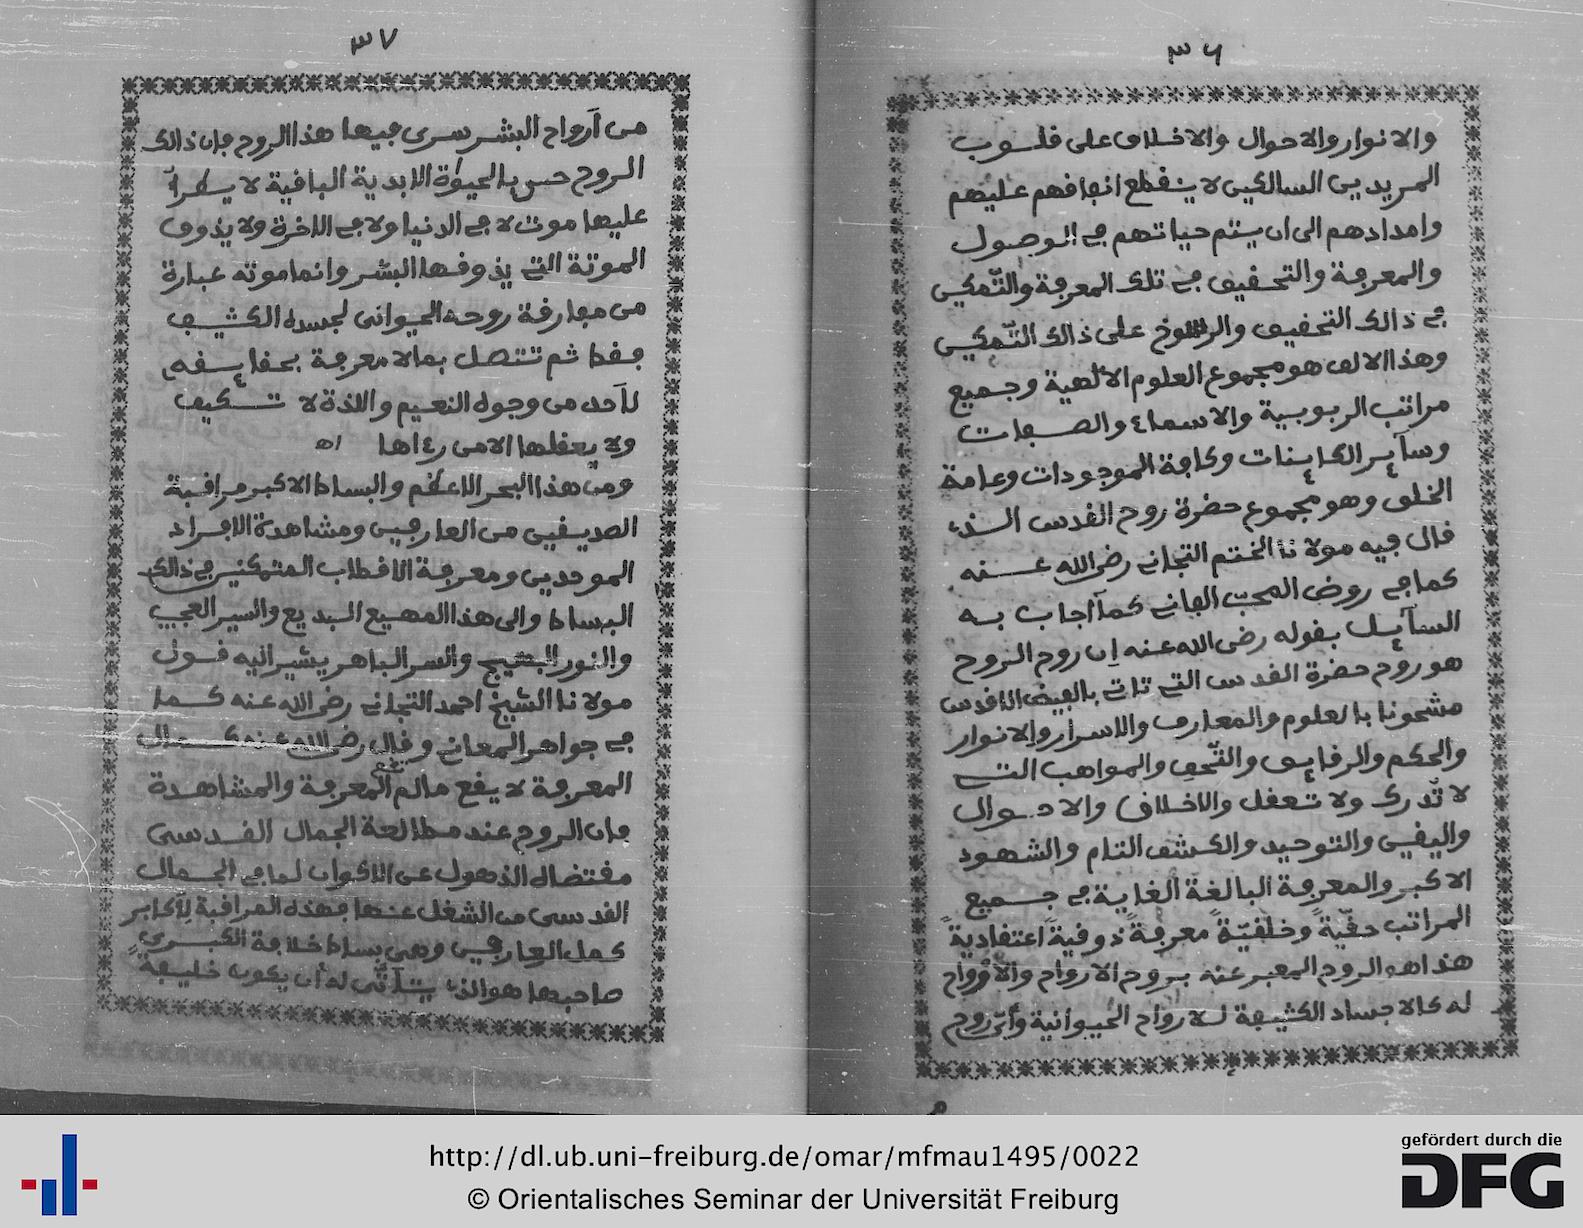 ٣٦
والانوار والاحوال والاخلاق على قلوب
المريدين السالكين لا ينقطع انفاقهم عليهم
وامدادهم الى ان يتم حياتهم في الوصول
والمعرفة والتحقيق في تلك المعرفة والتّمكين
في ذالك التحقيق والرسوخ على ذالك التّمكين
وهذا الالف هو مجموع العلوم الالهية وجميع
مراتب الربوبية والاسماء والصفات
وسآير الكاينات وكافة الموجودات وعامة
الخلق وهو مجموع حضرة روح القدس الذي
قال فيه مولانا الختم التجاني رضى الله عنه
كما في روض المحبّ الفاني كمآ اجاب به
السآيل بقوله رضى الله عنه ان روح الروح
هو روح حضرة القدس التي تاتي بالفيض الاقدس
مشحونا بالعلوم والمعارف والاسرار والانوار
والحكم والرقايق والتّحف والمواهب التي
لا تُدرك ولا تعقل والاخلاق والاحوال
واليقين والتوحيد والكشف التام والشهود
الاكبر والمعرفة البالغة الغاية في جميع
المراتب حقّيةً وخلقيّةً معرفةً ذوقيةً اعتقاديةً
هذا هو الروح المعبر عنه بروح الارواح والأرواح
له كالاجساد الكثيفة للارواح الحيوانية وأيّ روح
٣٧
من أرواح البشر سرى فيها هذا الروح فإن ذالك
الروح حيى بالحيوة الابدية الباقية لا يطرأ
عليها موت لا في الدنيا ولا في الاخرة ولا يذوق
الموتة التي يذوقها البشر وانما موته عبارة
من مفارقة روحه الحيواني لجسده الكثيف
فقط ثم تتصل بما لا معرفة بحقايقه
لأحد من وجوه النعيم واللذة لا تكيف
ولا يعقلها الا من رءاها اه
ومن هذا البحر الاعظم والبساط الاكبر مراقبة
الصديقين من العارفين ومشاهدة الافراد
الموحدين ومعرفة الاقطاب المتمكنين في ذالك
البساط والى هذا المهيع البديع والسير العجيب
والنور البهيج والسر الباهر يشير اليه قول
مولانا الشيخ احمد التجاني رضى الله عنه كما
في جواهر المعاني وقال رضى الله عنه كمال
المعرفة لا يقع مالم تقع المعرفة والمشاهدة
فإن الروح عند مطالعة الجمال القدسى
مقتضاه الذهول عن الاكوان لما في الجمال
القدسى من الشغل عنها فهذه المراقبة لأكابر
كمل العارفين وهى بساط خلافة الكبرى
صاحبها هو الذي يتأتّى له أن يكون خليفة
http://dl.ub.uni-freiburg.de/omar/mfmau1495/0022
© Orientalisches Seminar der Universität Freiburg
gefördert durch die
DFG